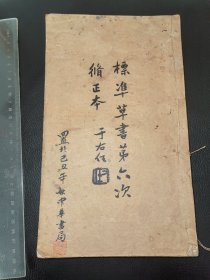 標準草書第六次
脩正本　于右任
置於己丑年安中華書局